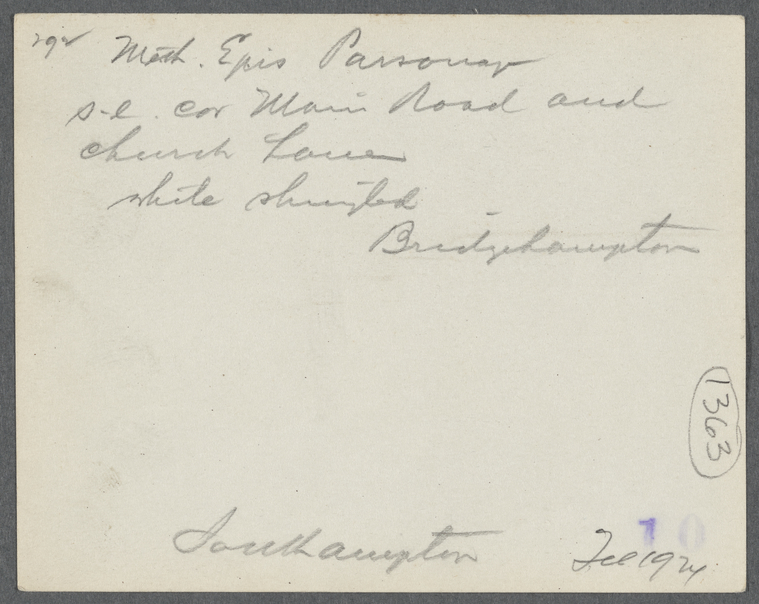 Meth. Epis Parsonage
s-e. cor Main Road and
church Lane
white shingled
Bridgehampton
1363
10
Southampton